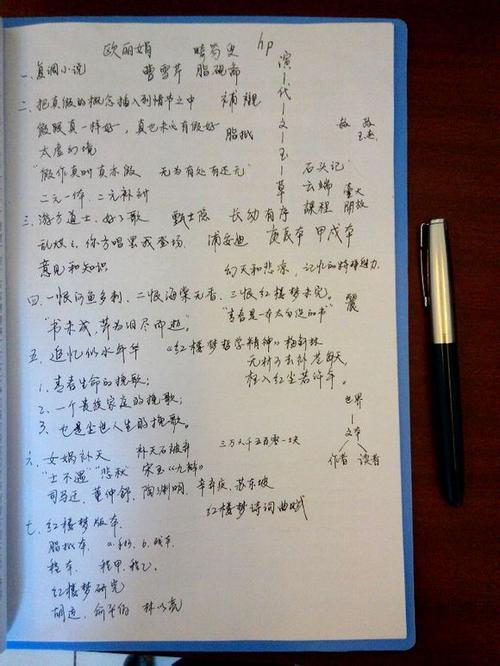 欧丽娟 畸笏叟 hp
一、复调小说 曹雪芹 脂砚斋
二、把真假的概念插入到情节之中 補襯
假跟真一样好，真也未必有假好 脂批
太虚幻境
"假作真时真亦假 无为有处有还无"
二元一体、二元补衬
演—代—文—玉—草
石头记
云端 臺大
課程 開放
三、游方道士、好了歌 甄士隐 长幼有序
乱烘烘，你方唱罢我登场、浦安迪 庚辰本 甲戌本
意见和知识 幻灭和悲凉，记忆的特神魅力
四、一恨鲥鱼多刺、二恨海棠无香、三恨红楼梦未完。
"书未成，芹为泪尽而逝。" "青春是一本太仓促的书" 麗
五、追忆似水年华 《红楼梦哲学精神》梅新林
无材可去补苍天，
枉入红尘若许年。
1、青春生命的挽歌；
2、一个贵族家庭的挽歌；
3、也是尘世人生的挽歌。
世界
文本
作者 读者
六、女娲补天 补天石被弃 三万六千五百零一块
"士不遇" "悲秋" 宋玉《九辩》
司马迁、董仲舒、陶渊明、辛弃疾、苏东坡
红楼梦诗词曲赋
七、红楼梦版本
脂批本、
程本、 程甲、程乙。
红楼梦研究
胡适、俞平伯 林以亮